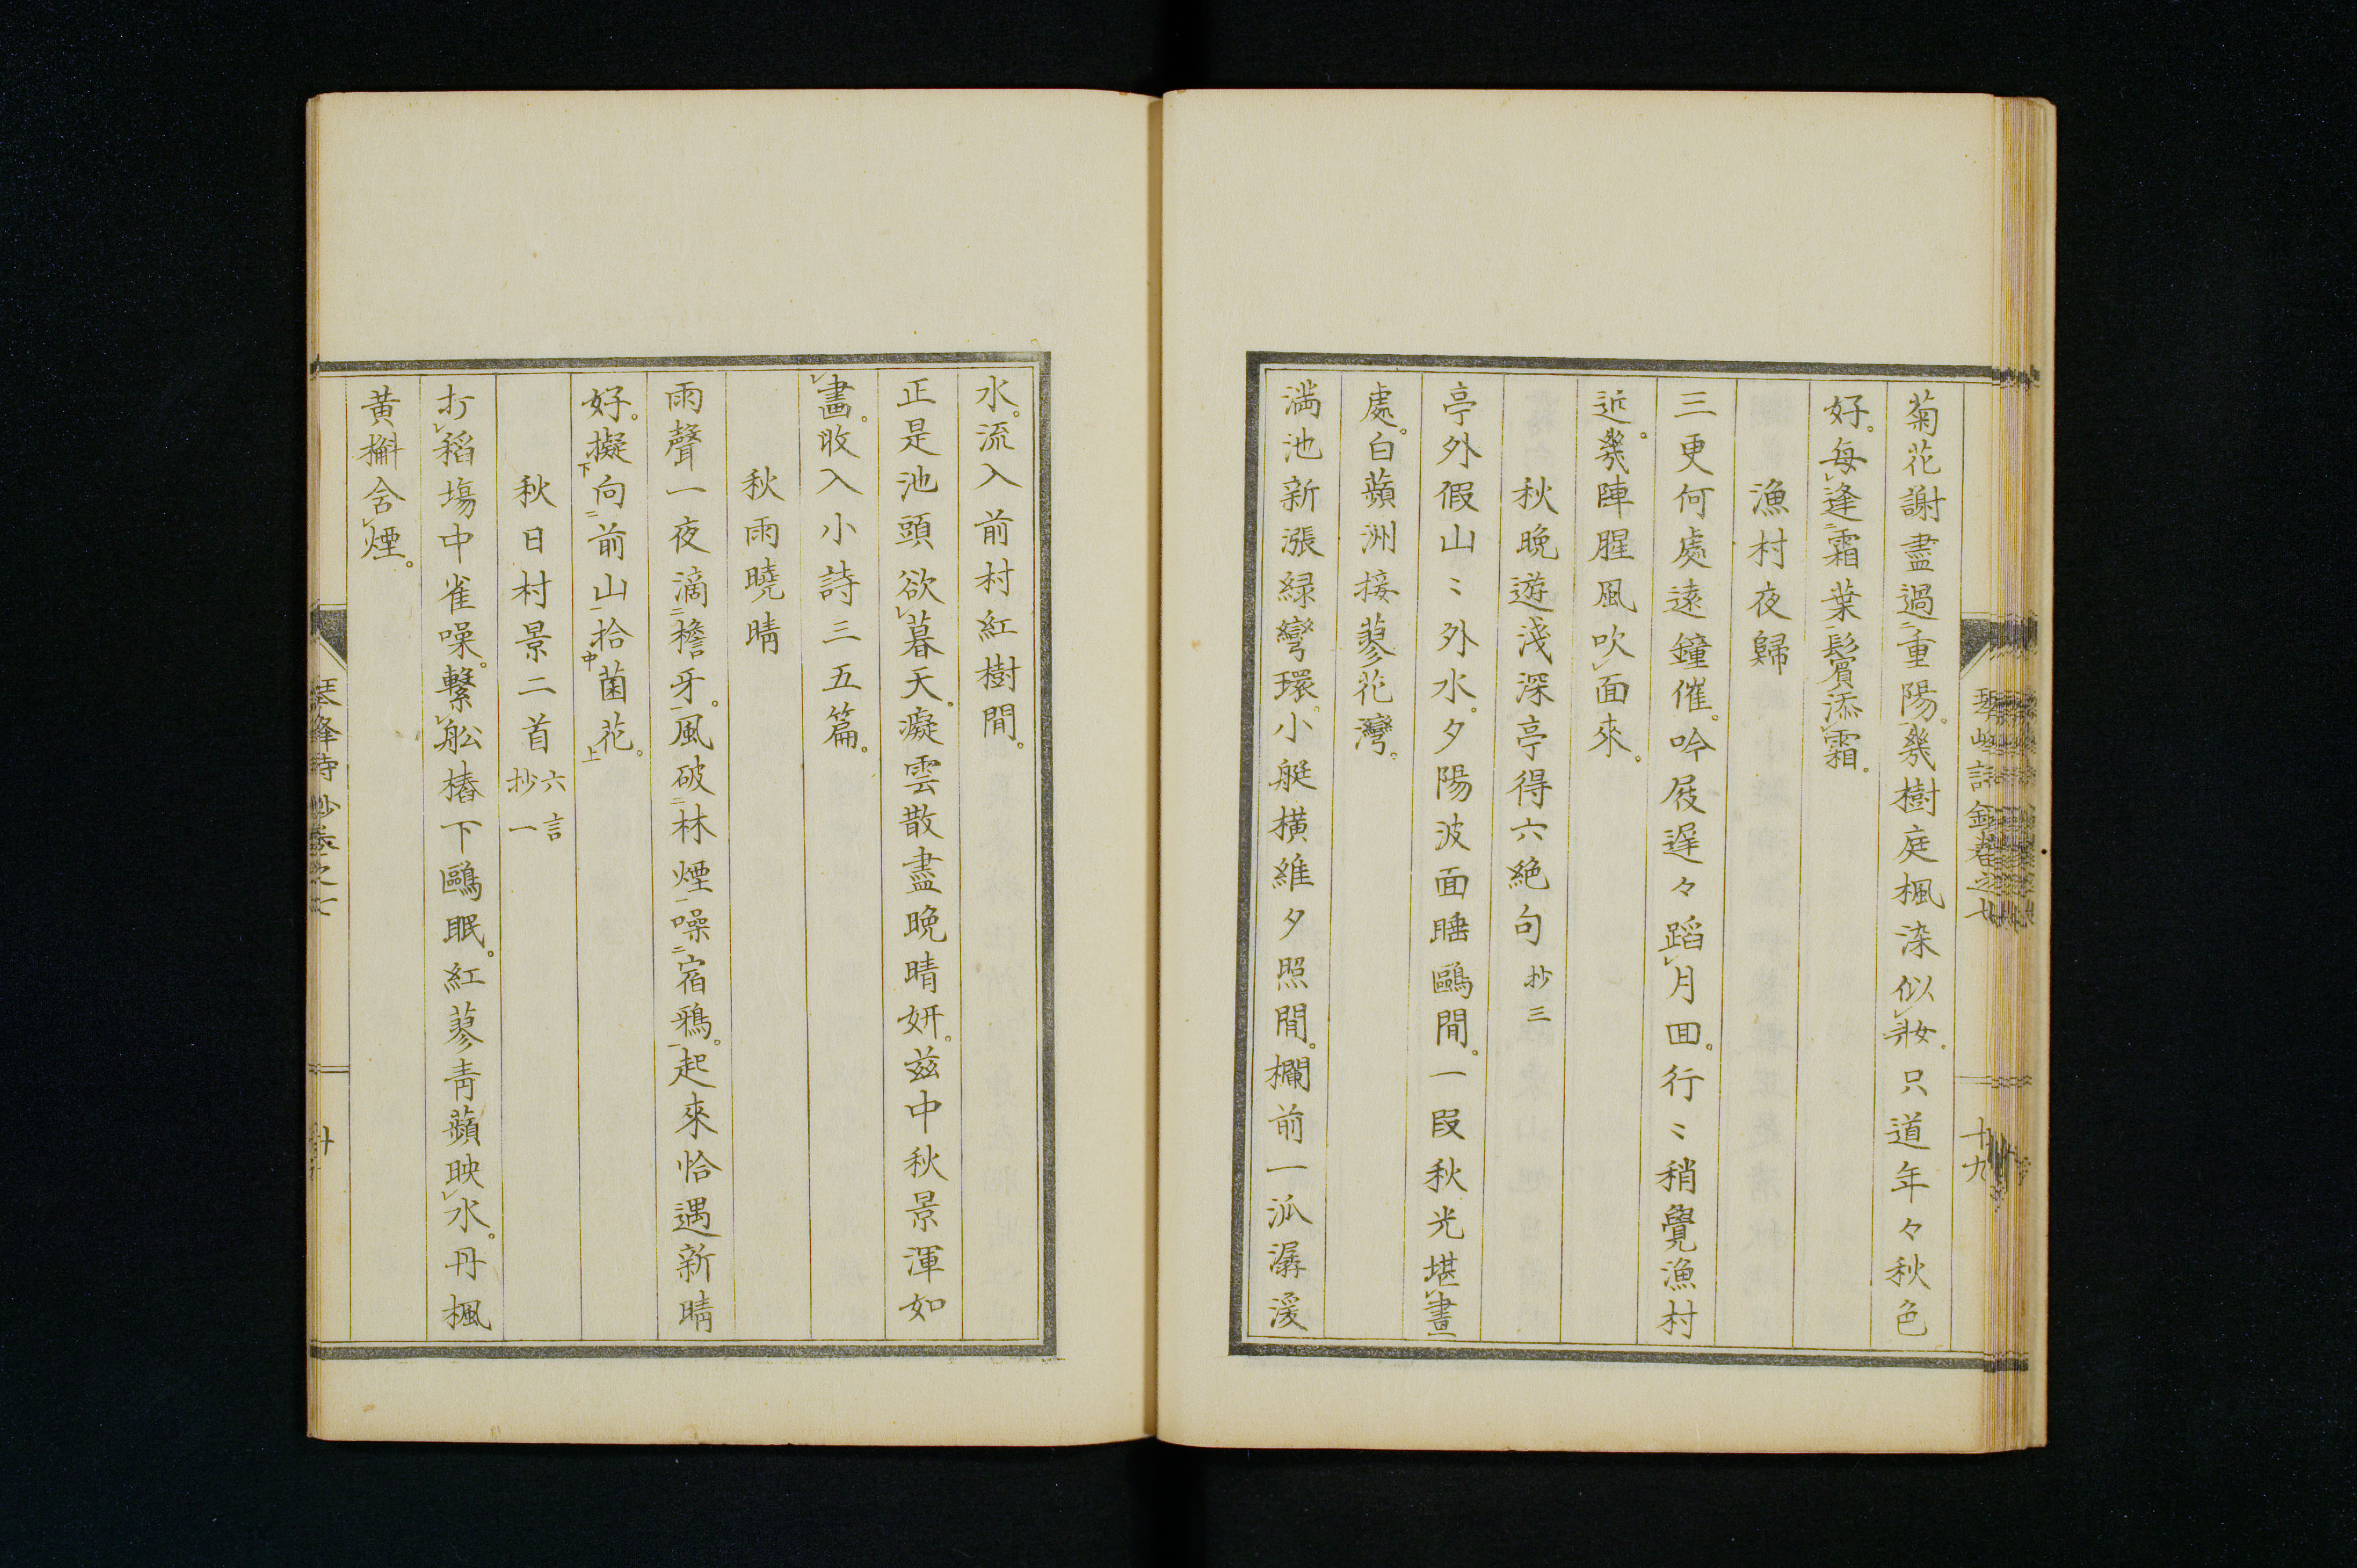 菊花謝盡過重陽。幾樹庭楓染似妝。只道年々秋色
好。每逢霜葉鬢添霜。
漁村夜歸
三更何處遠鐘催。吟屐遲々蹈月回。行〻稍覺漁村
近。幾陣腥風吹面來。
秋晚遊淺深亭得六絶句 抄三
亭外假山〻外水。夕陽波面睡鷗閒。一段秋光堪畫
處。白蘋洲接蓼花灣。
満池新漲緑彎環。小艇橫維夕照閒。欄前一派潺湲
水。流入前村紅樹間。
正是池頭欲暮天。癡雲散盡晚晴妍。兹中秋景渾如
畫。收入小詩三五篇。
秋雨曉晴
雨聲一夜滴檐牙。風破林煙噪宿鴉。起來恰遇新晴
好。擬向前山拾菌花。
秋日村景二首 六言抄一
打稻場中雀噪。繫舩樁下鷗眠。紅蓼青蘋映水。丹楓
黃槲含煙。